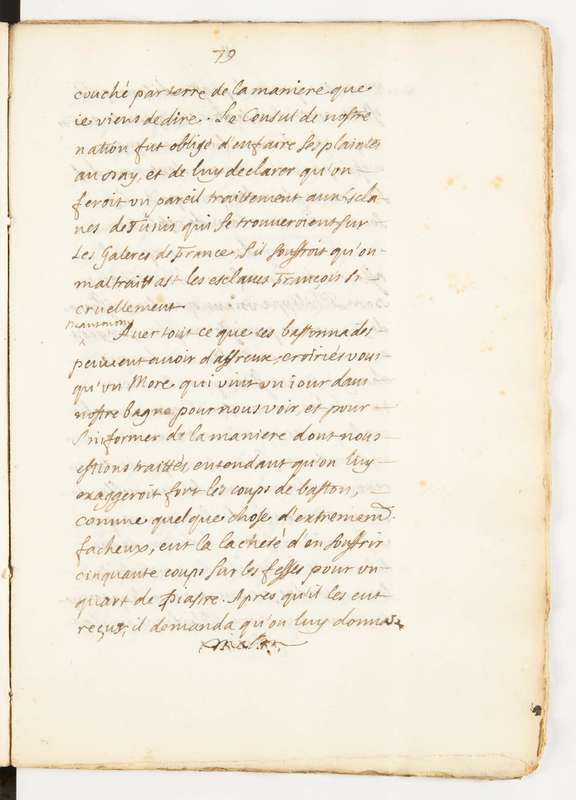 79
couché par terre de la maniere que
ie viens de dire. Le Consul de nostre
nation fut obligé d'en faire ses plaintes
au Day, et de luy declarer qu'on
feroit un pareil traittement aux Escla-
ues de Tunis qui se trouueroient sur
Les Galeres de France, s'il souffroit qu'on
maltraittast les esclaues françois si
cruellement
neantmoins
Auec tout ce que ces bastonnades
peuuent auoir d'affreux, croiriés vous
qu'vn More qui vint vn iour dans
nostre bagne pour nous voir, et pour
s'informer de la maniere dont nous
estions traittés, entendant qu'on luy
exaggeroit fort les coups de baston,
comme quelque chose d'extremem.t
facheux, eut la lacheté d'en souffrir
cinquante coups sur les fesses pour vn
quart de Piastre. Apres qu'il les eut
reçus, il demanda qu'on luy donnast